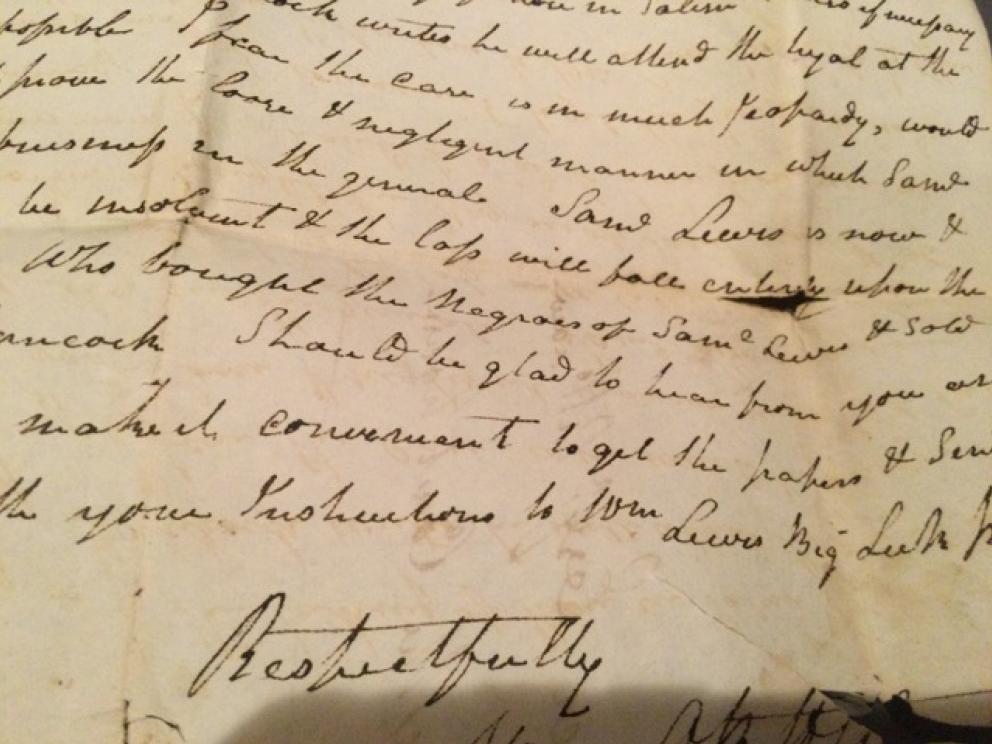 now in Salem if necessary
possible writes he will attend the tryal at the
prove the I fear the case is in much Jeopardy, would
loose & negligent manner in which Saml
business in the general Saml Lewis is now &
be insolvent & the loss will fall entirely upon the
Who bought the Negroes of Saml Lewis & sold
ancock Should be glad to hear from you as
make it convenient to get the papers & Sen
th your Instructions to Wm Lewis Big Lick
Respectfully